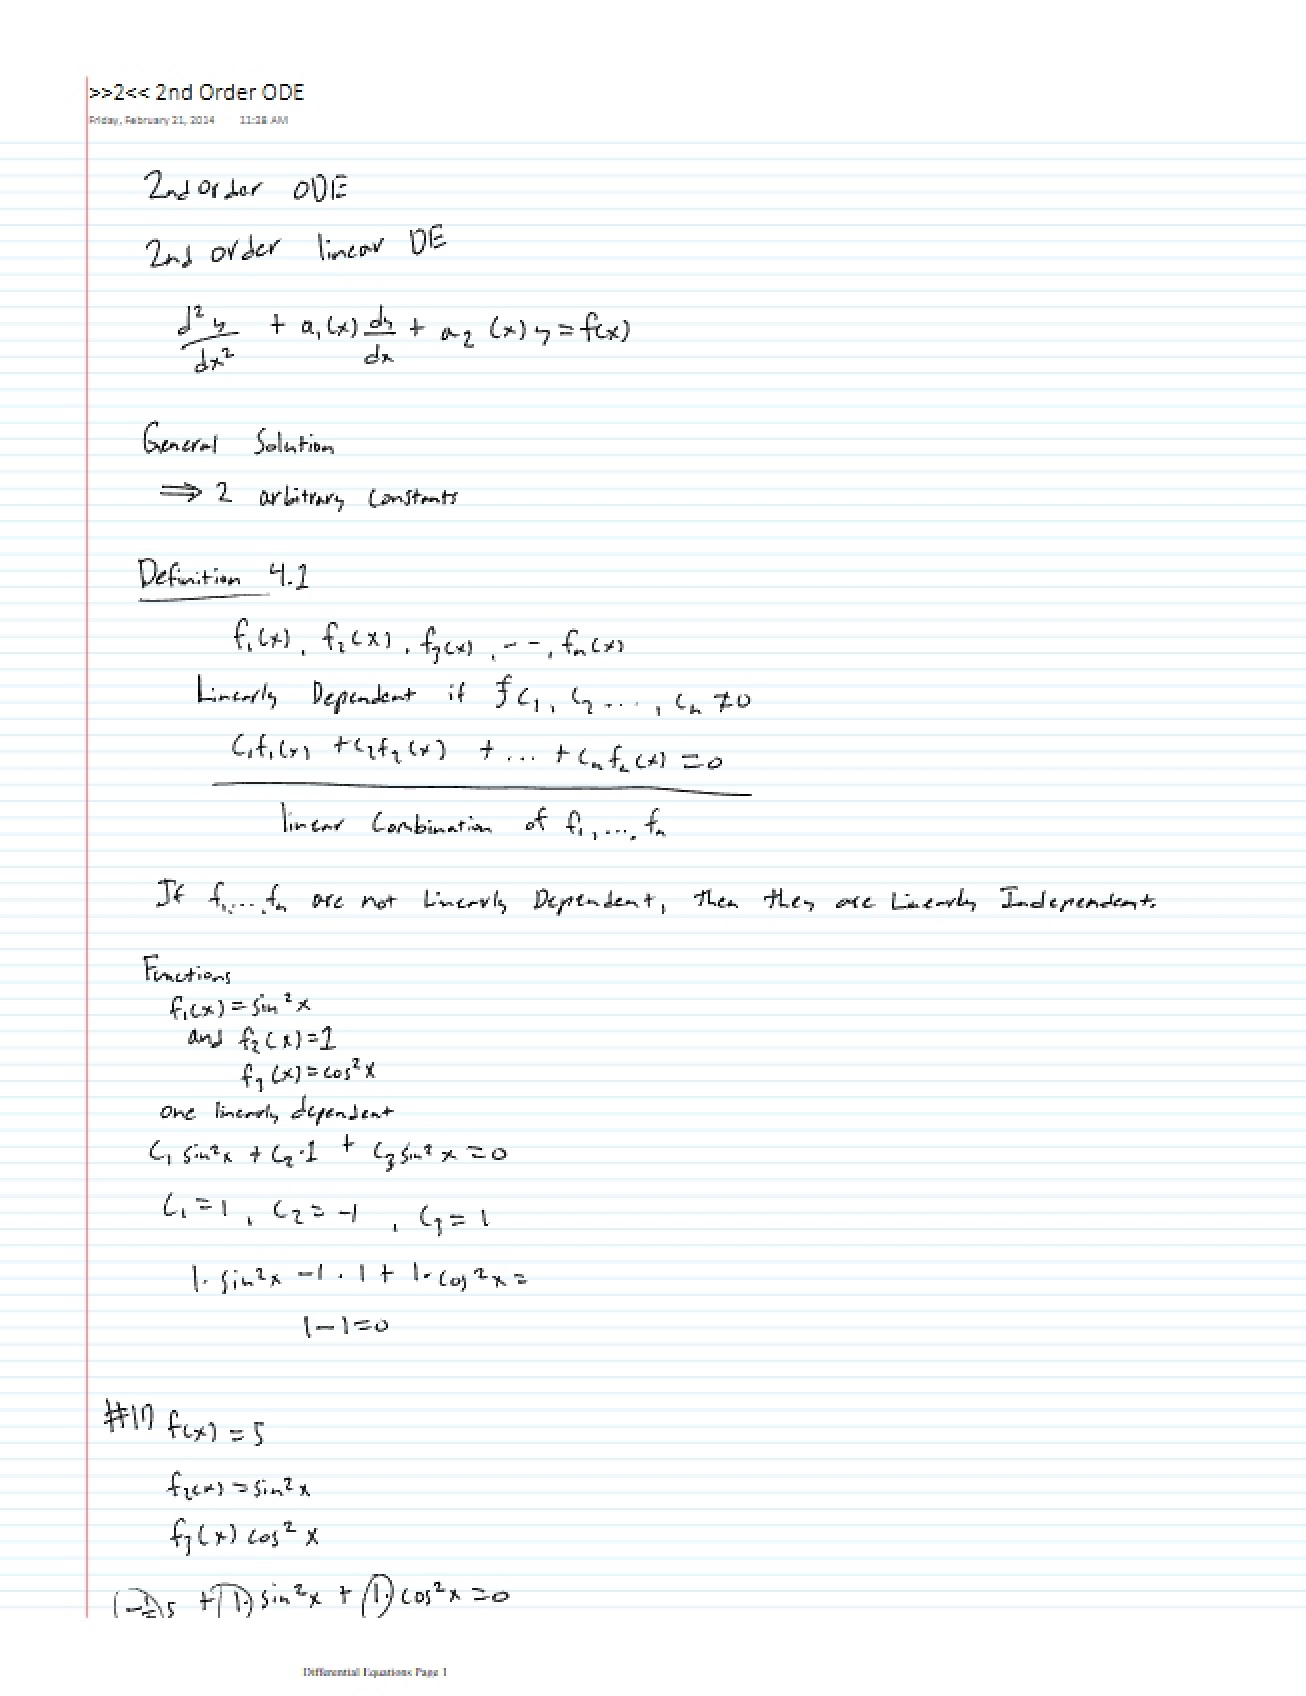 >>2<< 2nd Order ODE
Friday, February 21, 2014 11:28 AM
2nd order ODE
2nd order linear DE
d²y/dx² + a₁(x) dy/dx + a₂(x) y = f(x)
General Solution
⇒ 2 arbitrary constants
Definition 4.1
f₁(x), f₂(x), f₃(x), --, fₙ(x)
Linearly Dependent if ∃ c₁, c₂ ..., cₙ ≠0
c₁f₁(x) + c₂f₂(x) + ... + cₙfₙ(x) = 0
linear combination of f₁, ..., fₙ
If f₁, ..., fₙ are not Linearly Dependent, then they are Linearly Independent.
Functions
f₁(x) = sin²x
and f₂(x) = 1
f₃(x) = cos²x
one linearly dependent
c₁ sin²x + c₂·1 + c₃ sin²x = 0
c₁ = 1, c₂ = -1, c₃ = 1
1· sin²x -1 · 1 + 1· cos²x =
1-1=0
#17 f(x) = 5
f₂(x) = sin²x
f₃(x) cos²x
5 + (1·) sin²x + (1·) cos²x = 0
Differential Equations Page 1